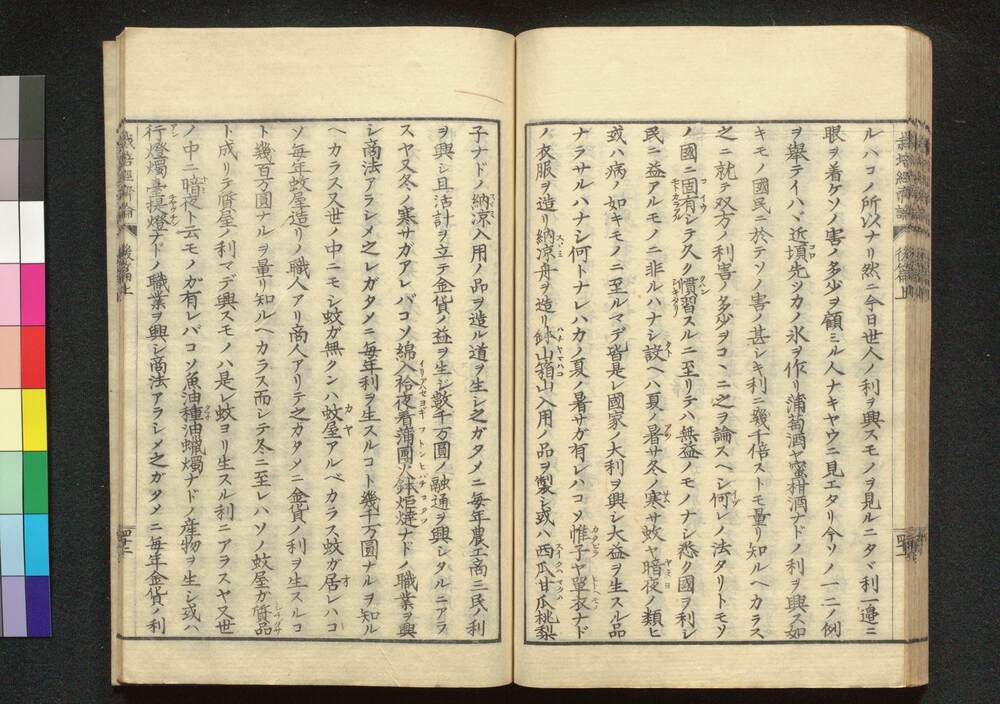 ルハコノ所以ナリ然ニ今日世人ノ利ヲ興スモノヲ見ルニタヾ利一邉ニ
眼ヲ着ケソノ害ノ多少ヲ顧ミル人ナキヤウニ見エタリ今ソノ一二ノ例
ヲ舉テイハヾ近頃先ツカノ氷ヲ作リ蒲萄酒ヤ蜜柑酒ナドノ利ヲ興ス如
キモノ國民ニ於テソノ害ノ甚シキ利ニ幾千倍ストモ量リ知ルヘカラス
之ニ就テ双方ノ利害ノ多少ヲコヽニ之ヲ論スヘシ何レノ法タリトモソ
ノ國ニ固有シテ久ク慣習スルニ至リテハ無益ノモノナシ悉ク國ヲ利シ
民ニ益アルモノニ非ルハナシ設ヘハ夏ノ暑サ冬ノ寒サ蚊ヤ暗夜ノ類ヒ
或ハ病ノ如キモノニ至ルマデ皆是レ國家ノ大利ヲ興シ大益ヲ生スル品
ナラサルハナシ何トナレハカノ夏ノ暑サガ有レハコソ惟子ヤ單衣ナド
ノ衣服ヲ造リ納凉舟ヲ造リ鉢山箱山入用ノ品ヲ製シ或ハ西瓜甘瓜桃梨
子ナドノ納凉入用ノ品ヲ造ル道ヲ生シ之ガタメニ毎年農工商三民ノ利
ヲ興シ且活計ヲ立テ金貨ノ益ヲ生シ數千万圓ノ融通ヲ興シタルニアラ
スヤ又冬ノ寒サガアレバコソ綿入袷夜着蒲團火鉢炬燵ナドノ職業ヲ興
シ商法アラシメ之レガタメニ毎年利ヲ生スルコト幾千万圓ナルヲ知ル
ヘカラス又世ノ中ニモシ蚊ガ無クンハ蚊屋アルベカラス蚊ガ居レハコ
ソ毎年蚊屋造リノ職人アリ商人アリテ之カタメニ金貨ノ利ヲ生スルコ
ト幾百万圓ナルヲ量リ知ルヘカラス而シテ冬ニ至レハソノ蚊屋ガ質品
ト成リテ質屋ノ利マデ興スモノハ是レ蚊ヨリ生スル利ニアラスヤ又世
ノ中ニ暗夜ト云モノガ有レバコソ魚油種油蝋燭ナドノ産物ヲ生シ或ハ
行燈燭臺提燈ナドノ職業ヲ興シ商法アラシメ之ガタメニ毎年金貨ノ利